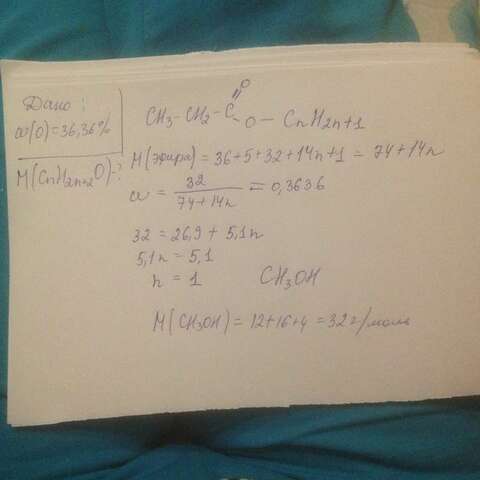 Дано:
ω(O)=36,36%
M(CnH2n+2O)-?
O
CH3-CH2-C
O-CnH2n+1
M(эфира)=36+5+32+14n+1=74+14n
ω = 32/(74+14n) = 0,3636
32=26,9+5,1n
5,1n=5,1
n=1
CH3OH
M(CH3OH)=12+16+4=32г/моль